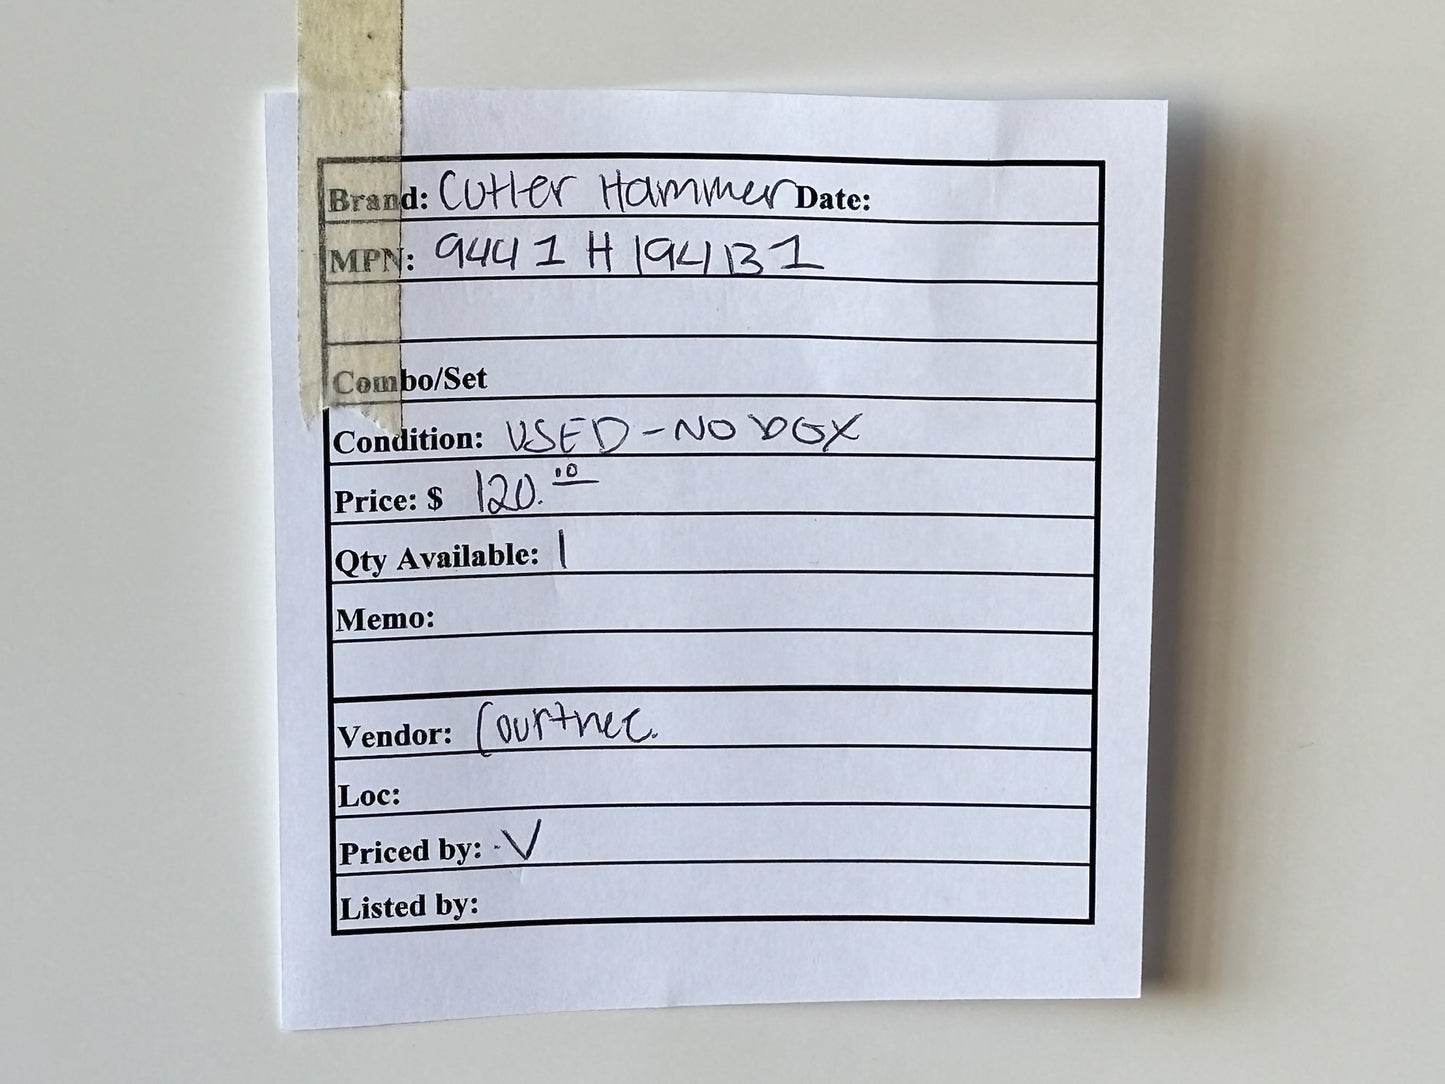 Brand: Cutler Hammer Date:
MPN: 9441H194B1
Combo/Set
Condition: USED - NO BOX
Price: $ 120.00
Qty Available: 1
Memo:
Vendor: Courtnee.
Loc:
Priced by: V
Listed by: